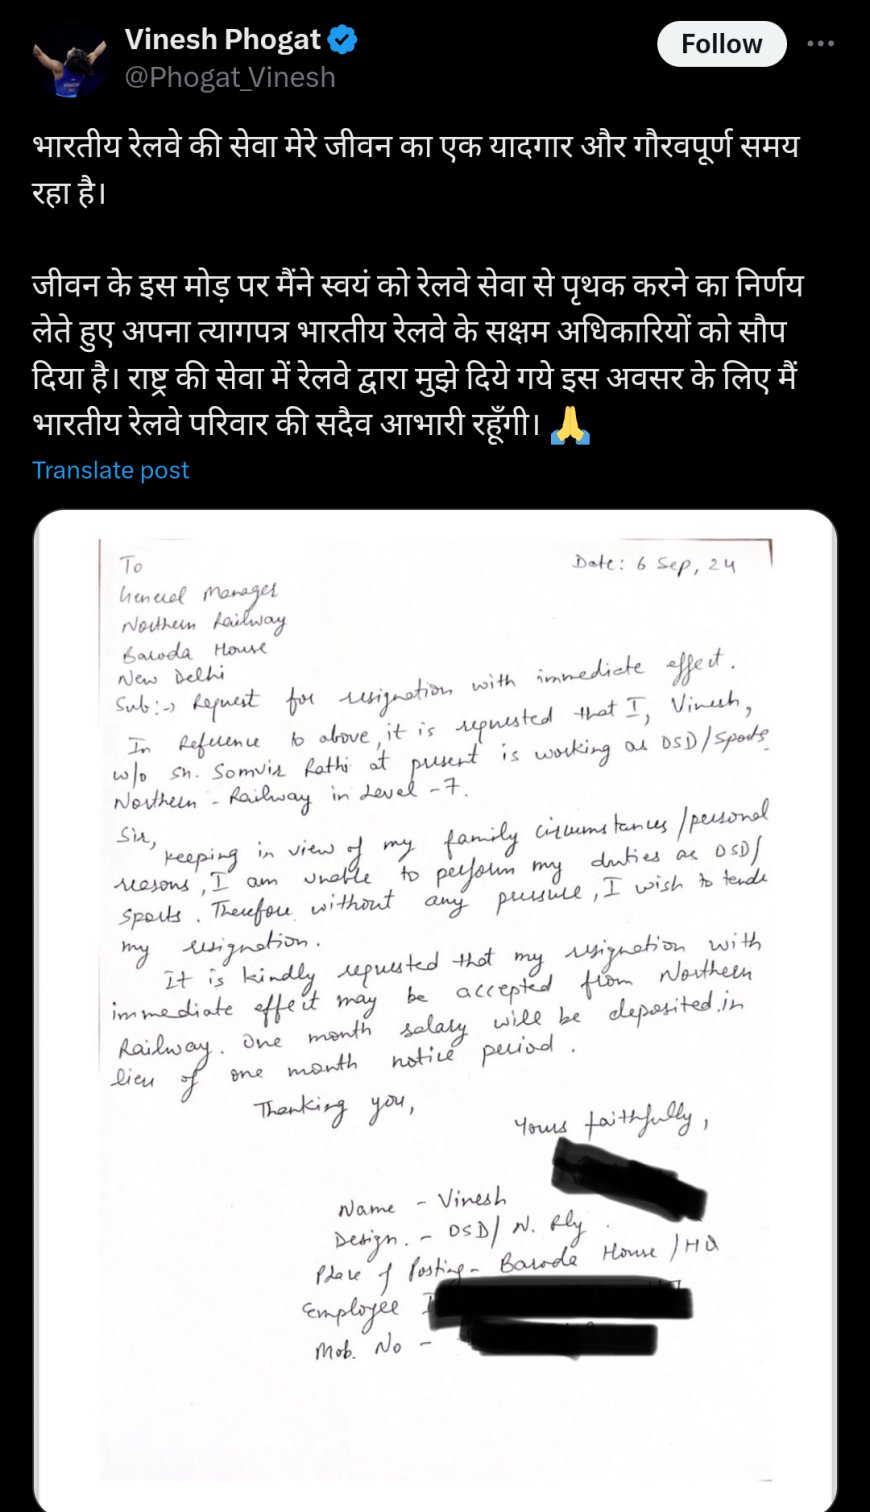 Vinesh Phogat
Follow
@Phogat_Vinesh
भारतीय रेलवे की सेवा मेरे जीवन का एक यादगार और गौरवपूर्ण समय
रहा है।
जीवन के इस मोड़ पर मैंने स्वयं को रेलवे सेवा से पृथक करने का निर्णय
लेते हुए अपना त्यागपत्र भारतीय रेलवे के सक्षम अधिकारियों को सौप
दिया है। राष्ट्र की सेवा में रेलवे द्वारा मुझे दिये गये इस अवसर के लिए मैं
भारतीय रेलवे परिवार की सदैव आभारी रहूँगी। 🙏
Translate post
To
Date: 6 Sep, 24
General Manager
Northern Railway
Baroda House
New Delhi
Sub:-> Request for resignation with immediate effect.
In Reference to above, it is requested that I, Vinesh,
w/o Sh. Somvir Rathi at present is working as OSD/Sports
Northern - Railway in Level -7.
Sir,
Keeping in view of my family circumstances /personal
reasons, I am unable to perform my duties as OSD/
Sports. Therefore without any pressure, I wish to tende
my resignation.
It is kindly requested that my resignation with
immediate effect may be accepted from Northern
Railway. One month salary will be deposited in
lieu of one month notice period.
Thanking you,
Yours faithfully,
Name - Vinesh
Design. - OSD/ N. Rly
Place of Posting - Baroda House /HQ
Employee
Mob. No -